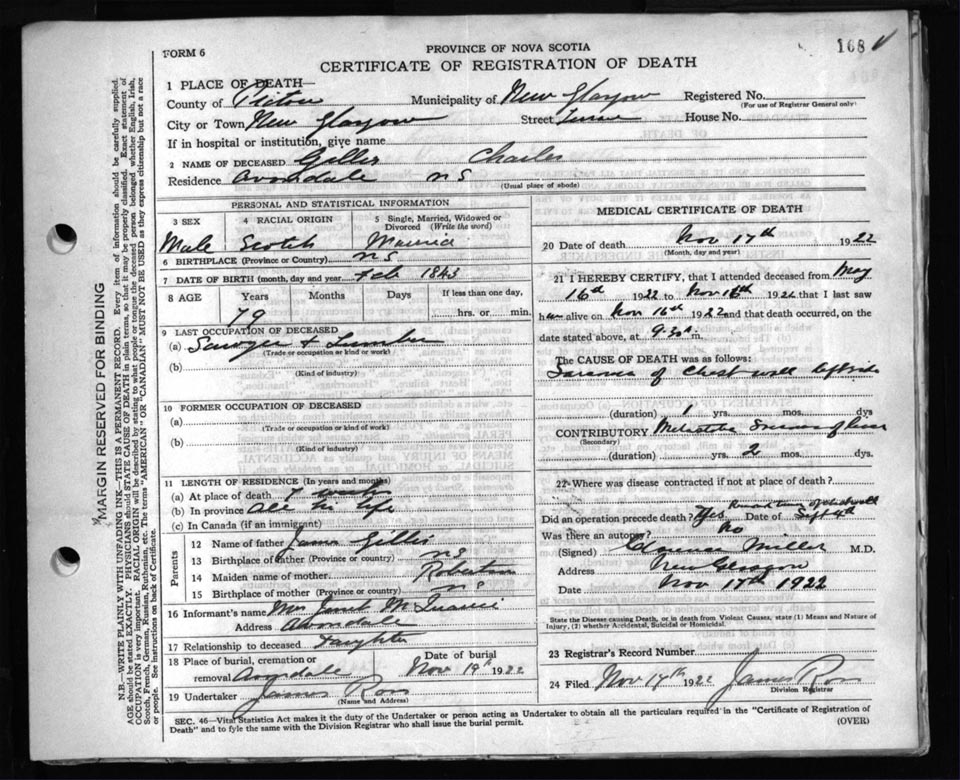 168
FORM 6
PROVINCE OF NOVA SCOTIA
CERTIFICATE OF REGISTRATION OF DEATH
1 PLACE OF DEATH—
County of Pictou Municipality of New Glasgow Registered No.
(For use of Registrar General only)
City or Town New Glasgow Street House No.
If in hospital or institution, give name
2 NAME OF DECEASED Gillis Charles
Residence Avondale NS
(Usual place of abode)
PERSONAL AND STATISTICAL INFORMATION
3 SEX 4 RACIAL ORIGIN 5 Single, Married, Widowed or Divorced (Write the word)
Male Scotch Married
6 BIRTHPLACE (Province or Country) NS
7 DATE OF BIRTH (month, day and year) Feb 1843
8 AGE Years Months Days If less than one day,
79 hrs. or min.
9 LAST OCCUPATION OF DECEASED
(a) Sawyer & Lumber
(Trade or occupation or kind of work)
(b)
(Kind of industry)
10 FORMER OCCUPATION OF DECEASED
(a)
(Trade or occupation or kind of work)
(b)
(Kind of industry)
11 LENGTH OF RESIDENCE (In years and months)
(a) At place of death 7 weeks
(b) In province All his life
(c) In Canada (if an immigrant)
Parents
12 Name of father James Gillis
13 Birthplace of father (Province or country) NS
14 Maiden name of mother Robertson
15 Birthplace of mother (Province or country) NS
16 Informant's name Mrs Janet
Address Avondale
17 Relationship to deceased Daughter
18 Place of burial, cremation or removal Avondale Date of burial Nov 19th 1922
19 Undertaker James Ross
(Name and Address)
MEDICAL CERTIFICATE OF DEATH
20 Date of death Nov 17th 1922
(Month, day and year)
21 I HEREBY CERTIFY, that I attended deceased from May
16th 1922 to Nov 16th 1922 that I last saw
him alive on Nov 16th 1922 and that death occurred, on the
date stated above, at 9.30 a m.
The CAUSE OF DEATH was as follows:
Sarcoma of Chest wall left side
(duration) 1 yrs. mos. dys
CONTRIBUTORY Sarcoma of liver
(Secondary)
(duration) yrs. 2 mos. dys.
22 Where was disease contracted if not at place of death?
Did an operation precede death? Yes Date of Sept 4th
Was there an autopsy? No
(Signed) Clarence Miller M.D.
Address New Glasgow
Date Nov 17th 1922
State the Disease causing Death, or in death from Violent Causes, state (1) Means and Nature of
Injury, (2) whether Accidental, Suicidal or Homicidal.
23 Registrar's Record Number
24 Filed Nov 17th 1922 James Ross
Division Registrar
SEC. 46—Vital Statistics Act makes it the duty of the Undertaker or person acting as Undertaker to obtain all the particulars required in the "Certificate of Registration of
Death" and to fyle the same with the Division Registrar who shall issue the burial permit.
(OVER)
MARGIN RESERVED FOR BINDING
N.B.—WRITE PLAINLY WITH UNFADING INK—THIS IS A PERMANENT RECORD. Every item of information should be carefully supplied.
AGE should be stated EXACTLY. PHYSICIANS should STATE CAUSE OF DEATH in plain terms, so that it may be properly classified. Exact statement of
OCCUPATION is very important. RACIAL ORIGIN will be described by stating to what people or tongue the deceased person belonged whether English, Irish,
Scotch, French, German, Russian, Ruthenian, etc. The terms "AMERICAN" OR "CANADIAN" MUST NOT BE USED as they express citizenship but not a race
or people. See instructions on back of Certificate.